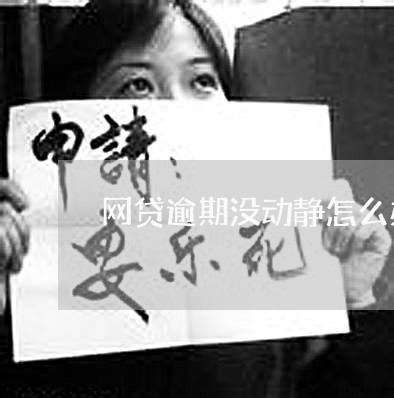 申請：
网贷逾期没动静怎么
安乐死